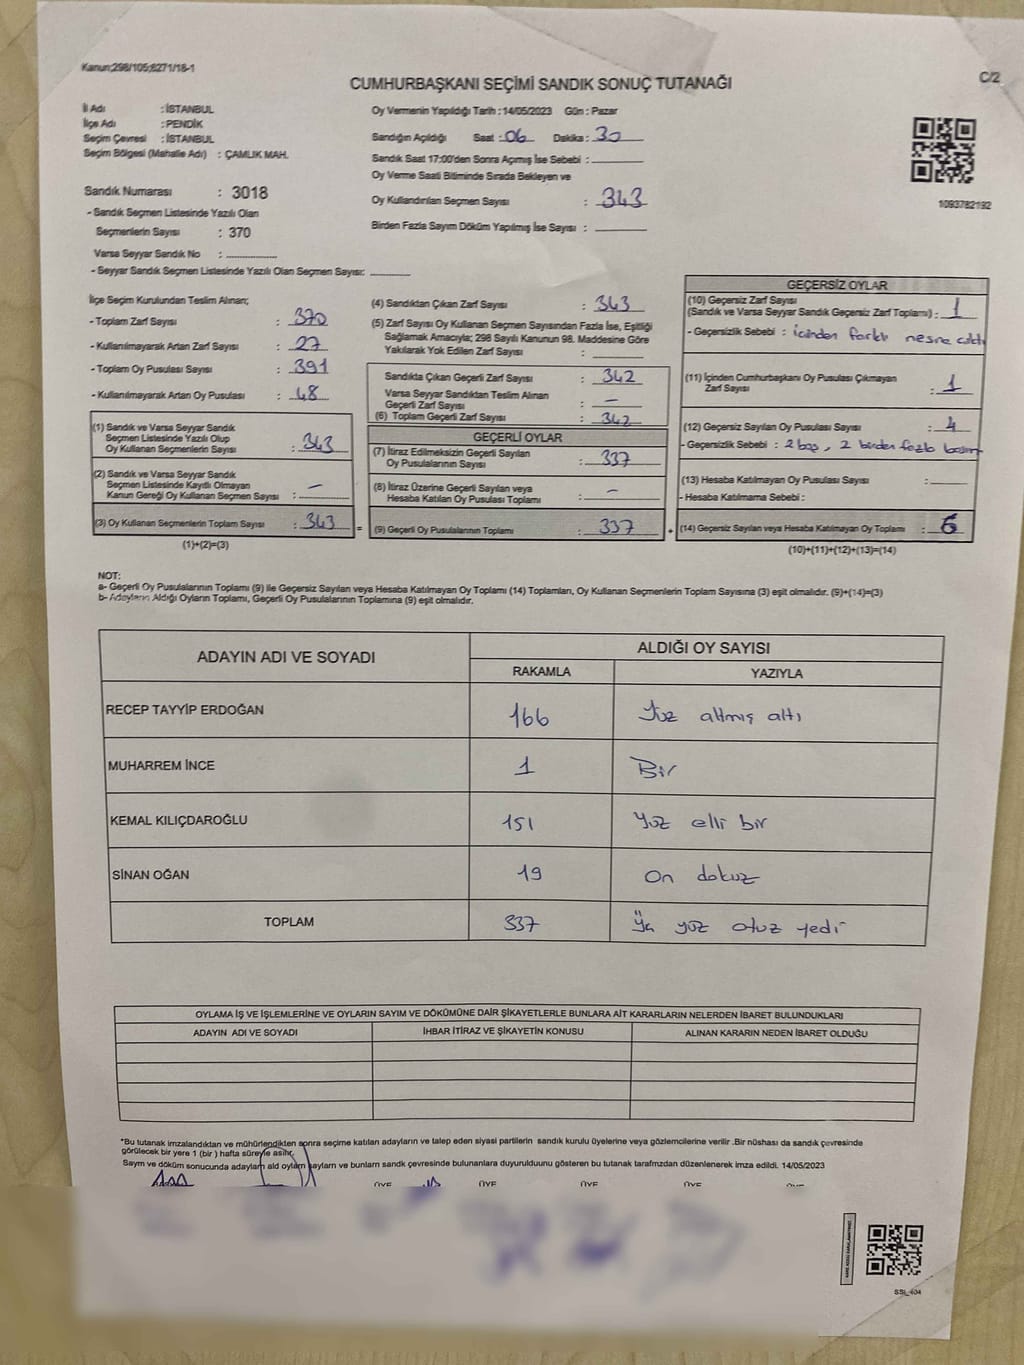 Kanun;298/105;6271/18-1
CUMHURBAŞKANI SEÇİMİ SANDIK SONUÇ TUTANAĞI
C/2
İl Adı : İSTANBUL
İlçe Adı : PENDİK
Seçim Çevresi : İSTANBUL
Seçim Bölgesi (Mahalle Adı) : ÇAMLIK MAH.
Sandık Numarası : 3018
- Sandık Seçmen Listesinde Yazılı Olan
Seçmenlerin Sayısı : 370
Varsa Seyyar Sandık No :
- Seyyar Sandık Seçmen Listesinde Yazılı Olan Seçmen Sayısı:
Oy Vermenin Yapıldığı Tarih : 14/05/2023 Gün : Pazar
Sandığın Açıldığı Saat : 06 Dakika : 30
Sandık Saat 17:00'den Sonra Açımış İse Sebebi :
Oy Verme Saati Bitiminde Sırada Bekleyen ve
Oy Kullandırılan Seçmen Sayısı : 343
Birden Fazla Sayım Döküm Yapılmış İse Sayısı :
1093782192
İlçe Seçim Kurulundan Teslim Alınan;
- Toplam Zarf Sayısı : 370
- Kullanılmayarak Artan Zarf Sayısı : 27
- Toplam Oy Pusulası Sayısı : 391
- Kullanılmayarak Artan Oy Pusulası : 48
(1) Sandık ve Varsa Seyyar Sandık
Seçmen Listesinde Yazılı Olup
Oy Kullanan Seçmenlerin Sayısı : 343
(2) Sandık ve Varsa Seyyar Sandık
Seçmen Listesinde Kayıtlı Olmayan
Kanun Gereği Oy Kullanan Seçmen Sayısı : –
(3) Oy Kullanan Seçmenlerin Toplam Sayısı : 343
(1)+(2)=(3)
(4) Sandıktan Çıkan Zarf Sayısı : 343
(5) Zarf Sayısı Oy Kullanan Seçmen Sayısından Fazla İse, Eşitliği
Sağlamak Amacıyla; 298 Sayılı Kanunun 98. Maddesine Göre
Yakılarak Yok Edilen Zarf Sayısı :
Sandıkta Çıkan Geçerli Zarf Sayısı : 342
Varsa Seyyar Sandıktan Teslim Alınan
Geçerli Zarf Sayısı : –
(6) Toplam Geçerli Zarf Sayısı : 342
GEÇERLİ OYLAR
(7) İtiraz Edilmeksizin Geçerli Sayılan
Oy Pusulalarının Sayısı : 337
(8) İtiraz Üzerine Geçerli Sayılan veya
Hesaba Katılan Oy Pusulası Toplamı : –
= (9) Geçerli Oy Pusulalarının Toplamı : 337
GEÇERSİZ OYLAR
(10) Geçersiz Zarf Sayısı
(Sandık ve Varsa Seyyar Sandık Geçersiz Zarf Toplamı) : 1
- Geçersizlik Sebebi : içinden farklı nesne çıktı
(11) İçinden Cumhurbaşkanı Oy Pusulası Çıkmayan
Zarf Sayısı : 1
(12) Geçersiz Sayılan Oy Pusulası Sayısı : 4
- Geçersizlik Sebebi : 2 boş, 2 birden fazla
(13) Hesaba Katılmayan Oy Pusulası Sayısı :
- Hesaba Katılmama Sebebi :
+ (14) Geçersiz Sayılan veya Hesaba Katılmayan Oy Toplamı : 6
(10)+(11)+(12)+(13)=(14)
NOT:
a- Geçerli Oy Pusulalarının Toplamı (9) ile Geçersiz Sayılan veya Hesaba Katılmayan Oy Toplamı (14) Toplamları, Oy Kullanan Seçmenlerin Toplam Sayısına (3) eşit olmalıdır. (9)+(14)=(3)
b- Adayların Aldığı Oyların Toplamı, Geçerli Oy Pusulalarının Toplamına (9) eşit olmalıdır.
ADAYIN ADI VE SOYADI
ALDIĞI OY SAYISI
RAKAMLA YAZIYLA
RECEP TAYYİP ERDOĞAN 166 Yüz altmış altı
MUHARREM İNCE 1 Bir
KEMAL KILIÇDAROĞLU 151 Yüz elli bir
SİNAN OĞAN 19 On dokuz
TOPLAM 337 Üç yüz otuz yedi
OYLAMA İŞ VE İŞLEMLERİNE VE OYLARIN SAYIM VE DÖKÜMÜNE DAİR ŞİKAYETLERLE BUNLARA AİT KARARLARIN NELERDEN İBARET BULUNDUKLARI
ADAYIN ADI VE SOYADI İHBAR İTİRAZ VE ŞİKAYETİN KONUSU ALINAN KARARIN NEDEN İBARET OLDUĞU
*Bu tutanak imzalandıktan ve mühürlendikten sonra seçime katılan adayların ve talep eden siyasi partilerin sandık kurulu üyelerine veya gözlemcilerine verilir .Bir nüshası da sandık çevresinde
görülecek bir yere 1 (bir ) hafta süreyle asılır.
Sayım ve döküm sonucunda adayların aldığı oyların sayıları ve bunların sandık çevresinde bulunanlara duyurulduğunu gösteren bu tutanak tarafımızdan düzenlenerek imza edildi. 14/05/2023
ÜYE ÜYE ÜYE ÜYE
SSL_404